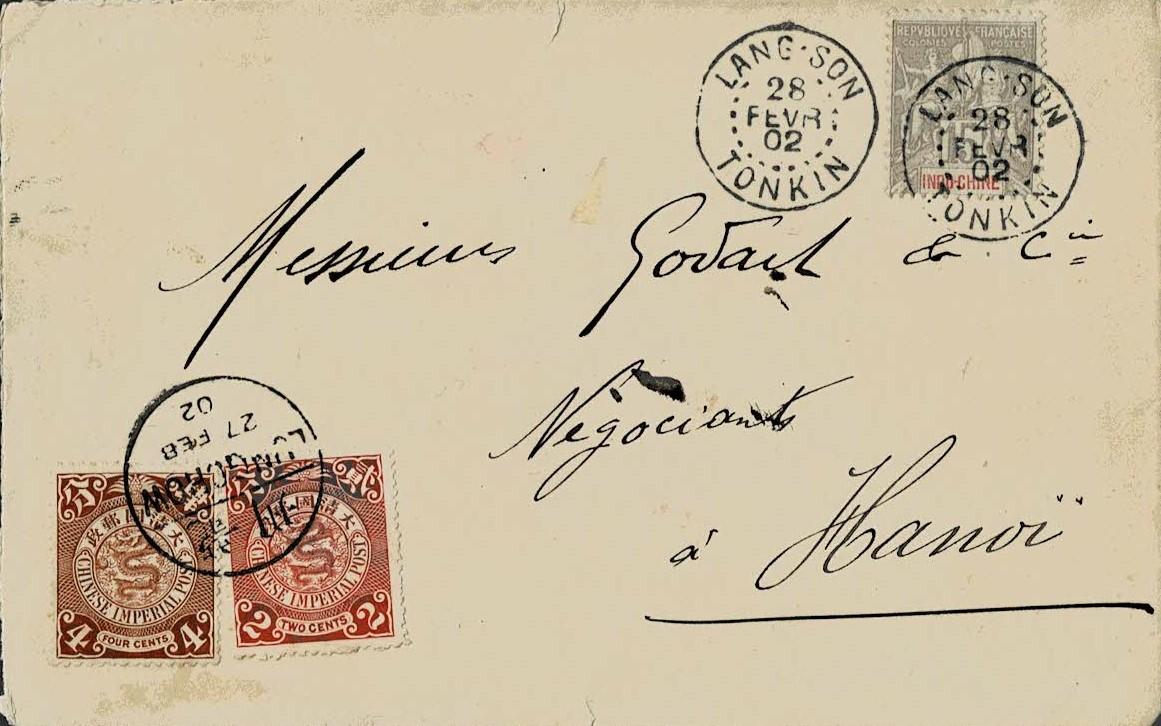 LANG-SON
28
FEVR
02
TONKIN
REPVBLIQVE FRANÇAISE
COLONIES POSTES
15
INDO-CHINE
LANG-SON
28
FEVR
02
TONKIN
Messieurs Godart & Cie
Négociants
à Hanoï
LUNGCHOW
27 FEB
02
州
分
大清國郵政
CHINESE IMPERIAL POST
4 FOUR CENTS 4
大清國郵政
CHINESE IMPERIAL POST
2 TWO CENTS 2